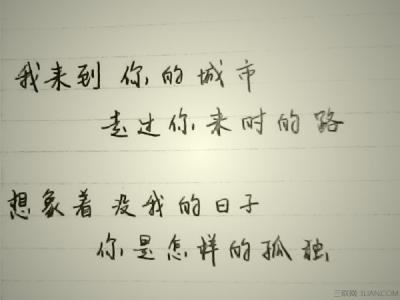 我来到 你的城市
走过你来时的路
想象着 没我的日子
你是怎样的孤独
三联网 3LIAN.COM